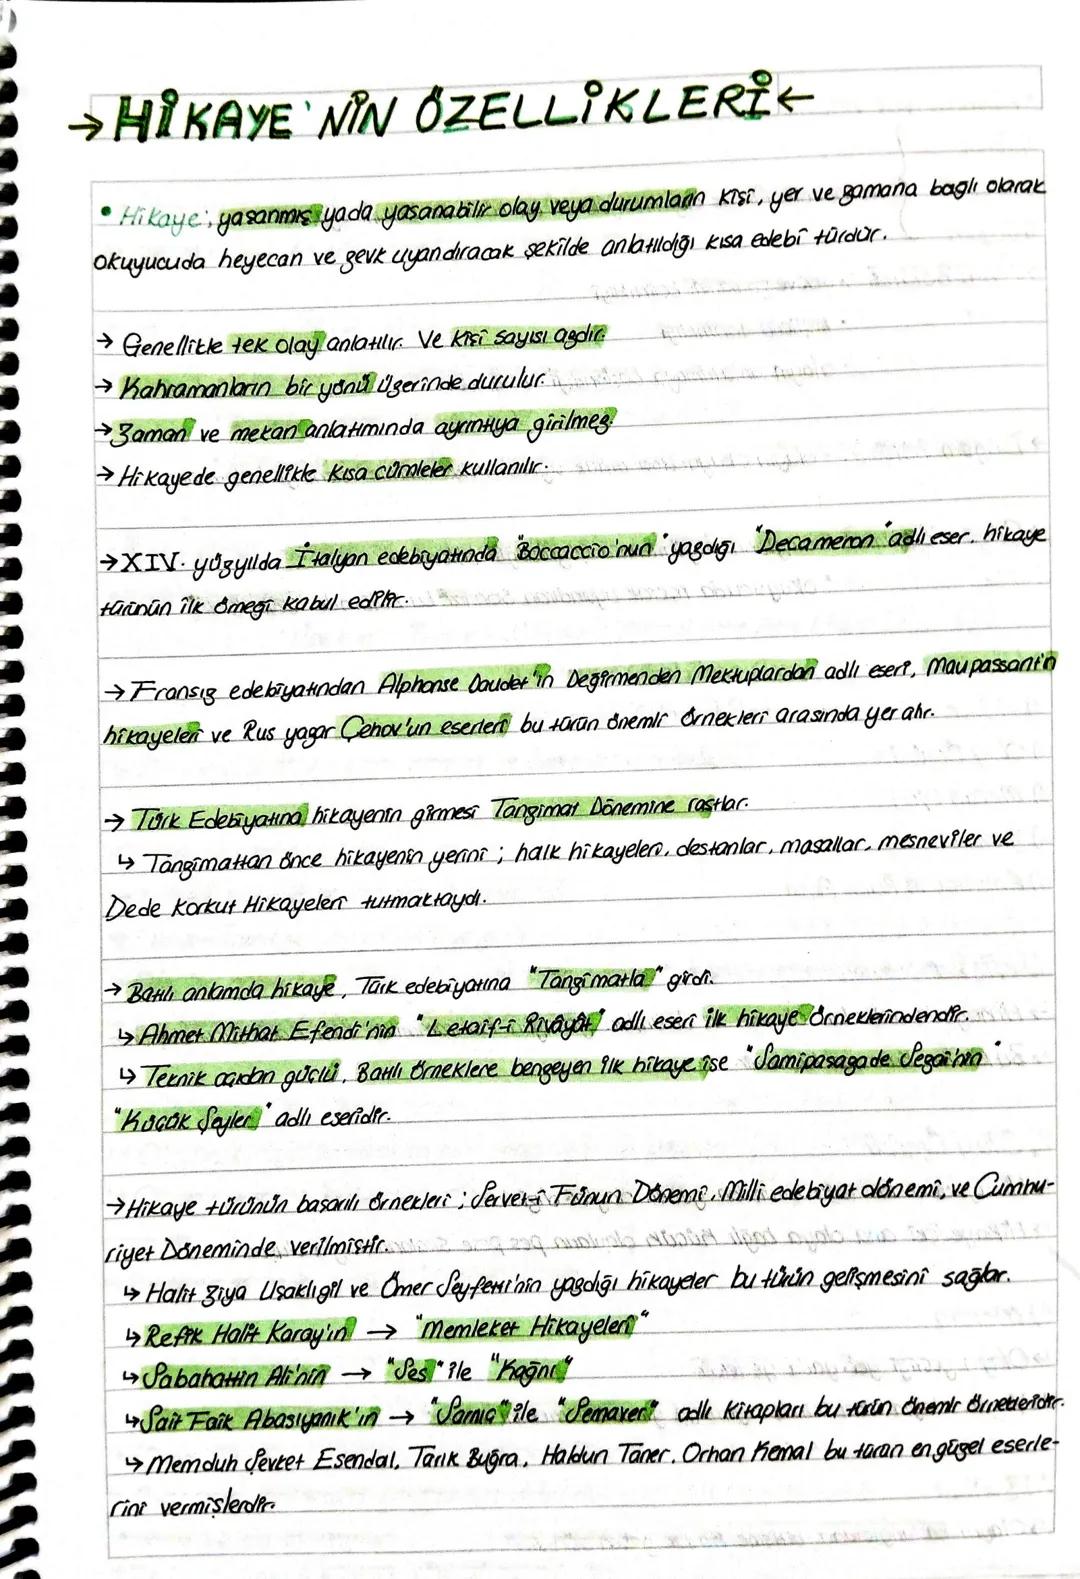 → HİKAYE'NİN ÖZELLİKLERİ ←
• Hikaye; yaşanmış yada yaşanabilir olay veya durumların kişi, yer ve zamana bağlı olarak
okuyucuda heyecan ve zevk uyandıracak şekilde anlatıldığı kısa edebi türdür.
→ Genellikle tek olay anlatılır. Ve kişi sayısı azdır.
→ Kahramanların bir yönü üzerinde durulur.
→ Zaman ve mekan anlatımında ayrıntıya girilmez.
→ Hikayede genellikle kısa cümleler kullanılır.
→ XIV. yüzyılda İtalyan edebiyatında "Boccaccio'nun" yazdığı "Decameron" adlı eser, hikaye
türünün ilk örneği kabul edilir.
→ Fransız edebiyatından Alphonse Daudet'in Değirmenden Mektuplardan adlı eseri, Maupassant'n
hikayeleri ve Rus yazar Çehov'un eserleri bu türün önemli örnekleri arasında yer alır.
→ Türk Edebiyatına hikayenin girmesi Tanzimat Dönemine rastlar.
↳ Tanzimattan önce hikayenin yerini ; halk hikayeleri, destanlar, masallar, mesneviler ve
Dede Korkut Hikayeleri tutmaktaydı.
→ Batılı anlamda hikaye, Türk edebiyatına "Tanzimatla" girdi.
↳ Ahmet Mithat Efendi'nin "Letaif-i Rivâyât" adlı eseri ilk hikaye örneklerindendir.
↳ Teknik açıdan güçlü, Batılı örneklere benzeyen ilk hikaye ise "Samipaşazade Sezai'nin"
"Küçük Şeyler" adlı eseridir.
→ Hikaye türünün başarılı örnekleri ; Servet-i Fünun Dönemi, Milli edebiyat dönemi, ve Cumhu-
riyet Döneminde verilmiştir.
↳ Halit Ziya Uşaklıgil ve Ömer Seyfettin'nin yazdığı hikayeler bu türün gelişmesini sağlar.
↳ Refik Halit Karay'ın → "Memleket Hikayeleri"
↳ Sabahattin Ali'nin → "Ses" ile "Kağnı"
↳ Sait Faik Abasıyanık'ın → "Sarnıç" ile "Semaver" adlı kitapları bu türün önemli örnekleridir.
↳ Memduh Şevket Esendal, Tarık Buğra, Haldun Taner, Orhan Kemal bu türün en güzel eserle-
rini vermişlerdir.